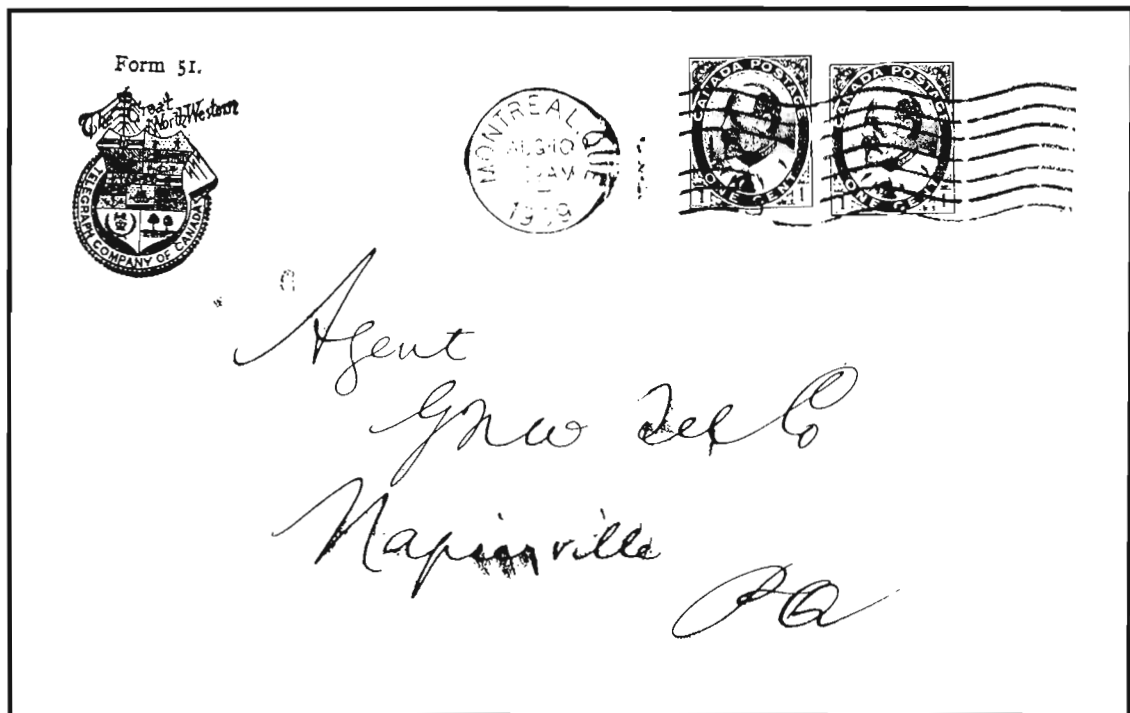 Form 51.
The Great
North Western
TELEGRAPH COMPANY OF CANADA
MONTREAL. QUE
AUG 10
AM
CANADA POSTAGE
1 ONE CENT 1
CANADA POSTAGE
1 ONE CENT 1
Agent
GNW Tel Co
Napierville
PQ